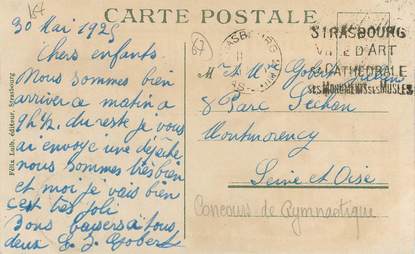 CARTE POSTALE
30 Mai 1925
Chers enfants
Nous sommes bien
arriver ce matin a
9h½ du reste je vous
ai envoyé une dépêche
nous sommes très bien
et moi je vais bien
c'est très joli
Bons baisers à tous
deux Gobert
Félix Luib, éditeur, Strasbourg
STRASBOURG
VILLE D'ART
SA CATHÉDRALE
SES MONUMENTS SES MUSÉES
Gobert
8 Parc
Montmorency
Seine et Oise
Concours de Gymnastique